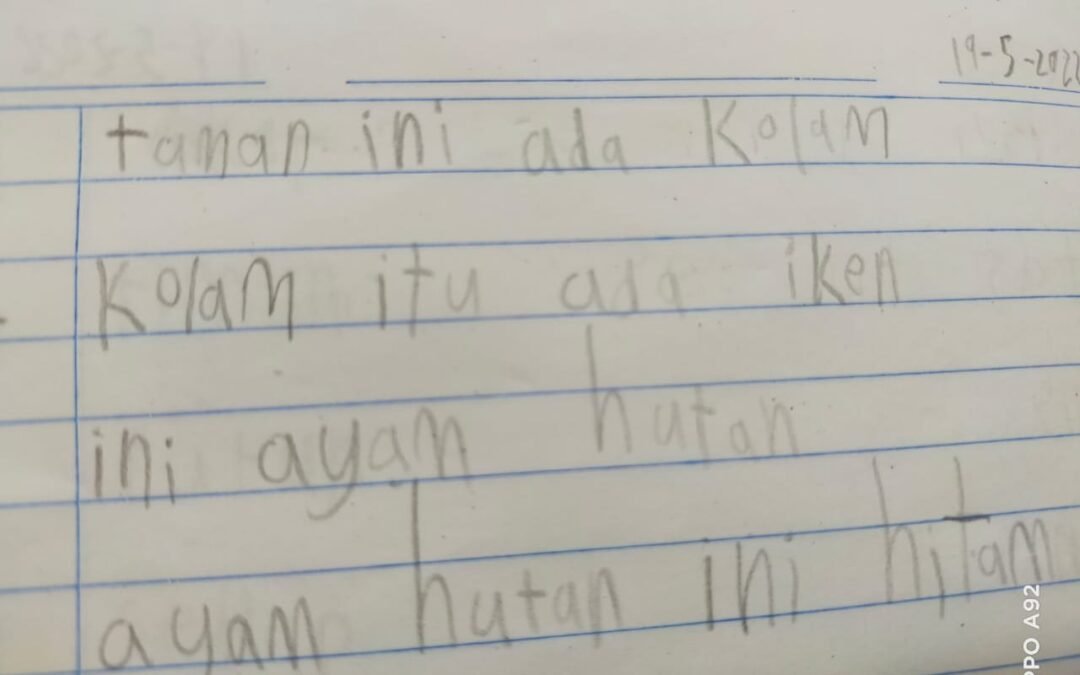 19-5-2022
taman ini ada Kolam
Kolam itu ada iken
ini ayam hutan
ayam hutan ini hitam
PPO A92